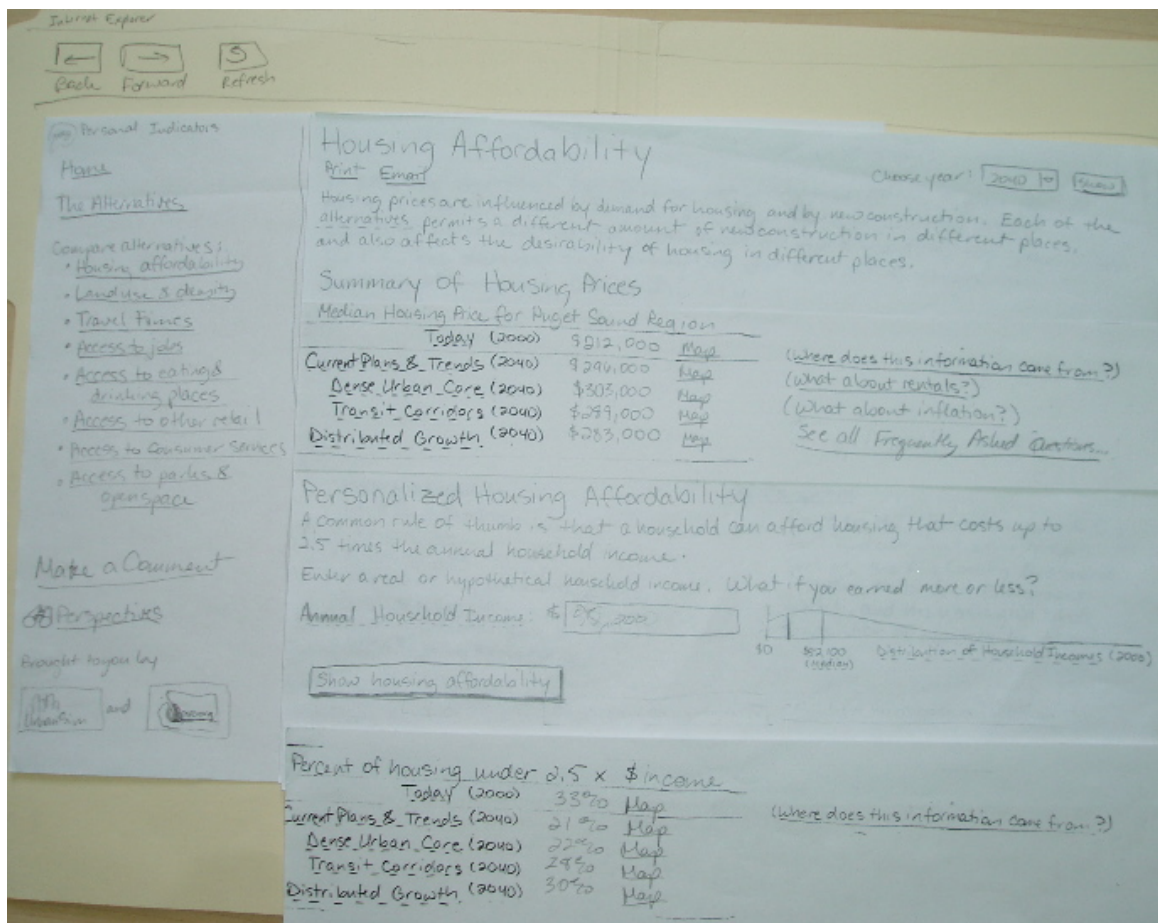 Internet Explorer
Back Forward Refresh
Personal Indicators
Home
The Alternatives
Compare alternatives:
• Housing affordability
• Land use & density
• Travel Times
• Access to jobs
• Access to eating &
drinking places
• Access to other retail
• Access to Consumer Services
• Access to parks &
open space
Make a Comment
Perspectives
Brought to you by
UrbanSim and
Housing Affordability
Print Email
Choose year: 2040 Show
Housing prices are influenced by demand for housing and by new construction. Each of the
alternatives permits a different amount of new construction in different places,
and also affects the desirability of housing in different places.
Summary of Housing Prices
Median Housing Price for Puget Sound Region
Today (2000) $212,000 Map
Current Plans & Trends (2040) $296,000 Map
Dense Urban Core (2040) $303,000 Map
Transit Corridors (2040) $299,000 Map
Distributed Growth (2040) $283,000 Map
(Where does this information come from?)
(What about rentals?)
(What about inflation?)
See all Frequently Asked Questions...
Personalized Housing Affordability
A common rule of thumb is that a household can afford housing that costs up to
2.5 times the annual household income.
Enter a real or hypothetical household income. What if you earned more or less?
Annual Household Income: $
$0 (Median) Distribution of Household Incomes (2000)
Show housing affordability
Percent of housing under 2.5 x $ income
Today (2000) 33% Map
Current Plans & Trends (2040) 21% Map
Dense Urban Core (2040) 22% Map
Transit Corridors (2040) 28% Map
Distributed Growth (2040) 30% Map
(Where does this information come from?)